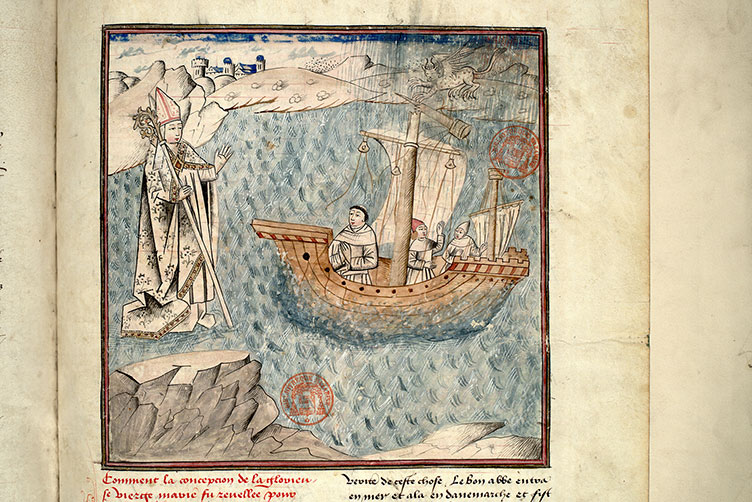 Comment la concepcion de la glorieu-
se vierge marie fu revellee pour
verite de ceste chose. Le bon abbe entra
en mer et ala en danemarche et fist